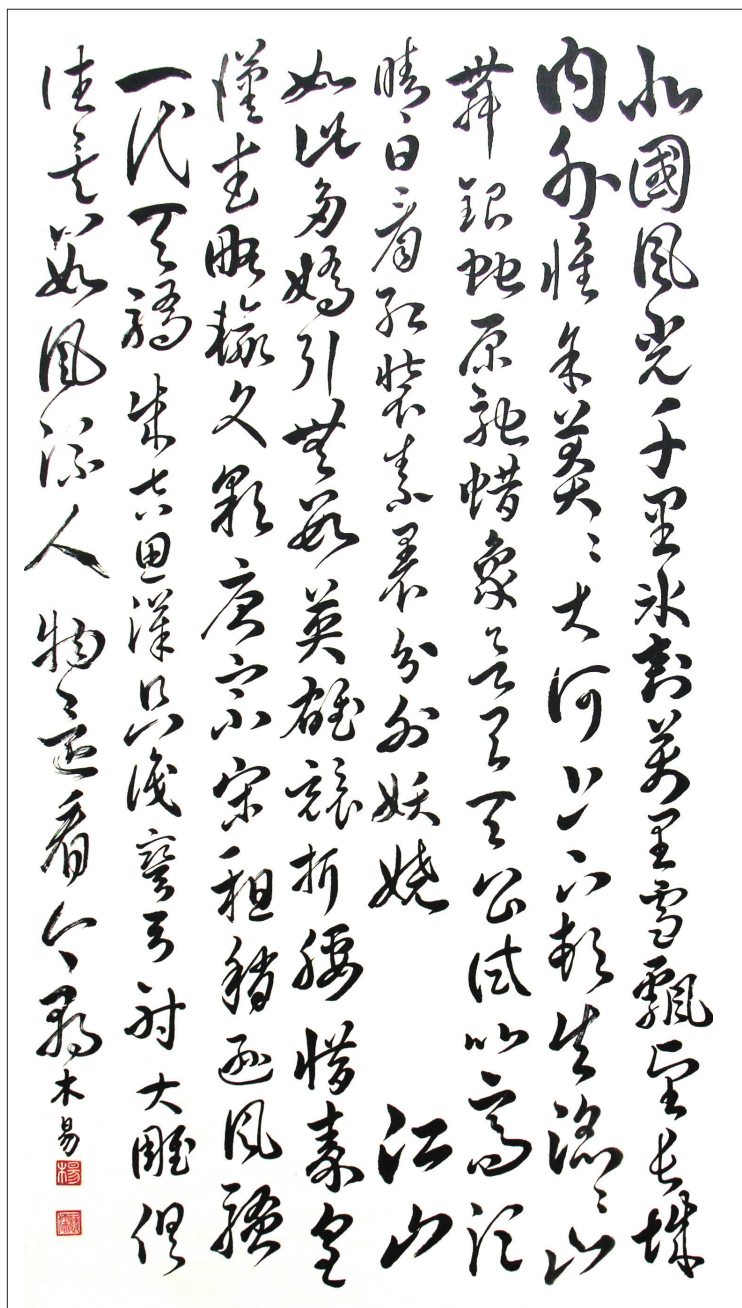 北國風光千里冰封萬里雪飄望長城
内外惟余莽〻大河上下頓失滔〻山
舞銀蛇原馳蜡象欲與天公試比高須
晴日看紅裝素裹分外妖嬈 江山
如此多嬌引無數英雄競折腰惜秦皇
漢武略輸文彩唐宗宋祖稍遜風騷
一代天驕成吉思漢只識彎弓射大雕俱
往矣數風流人物還看今朝 木易 楊